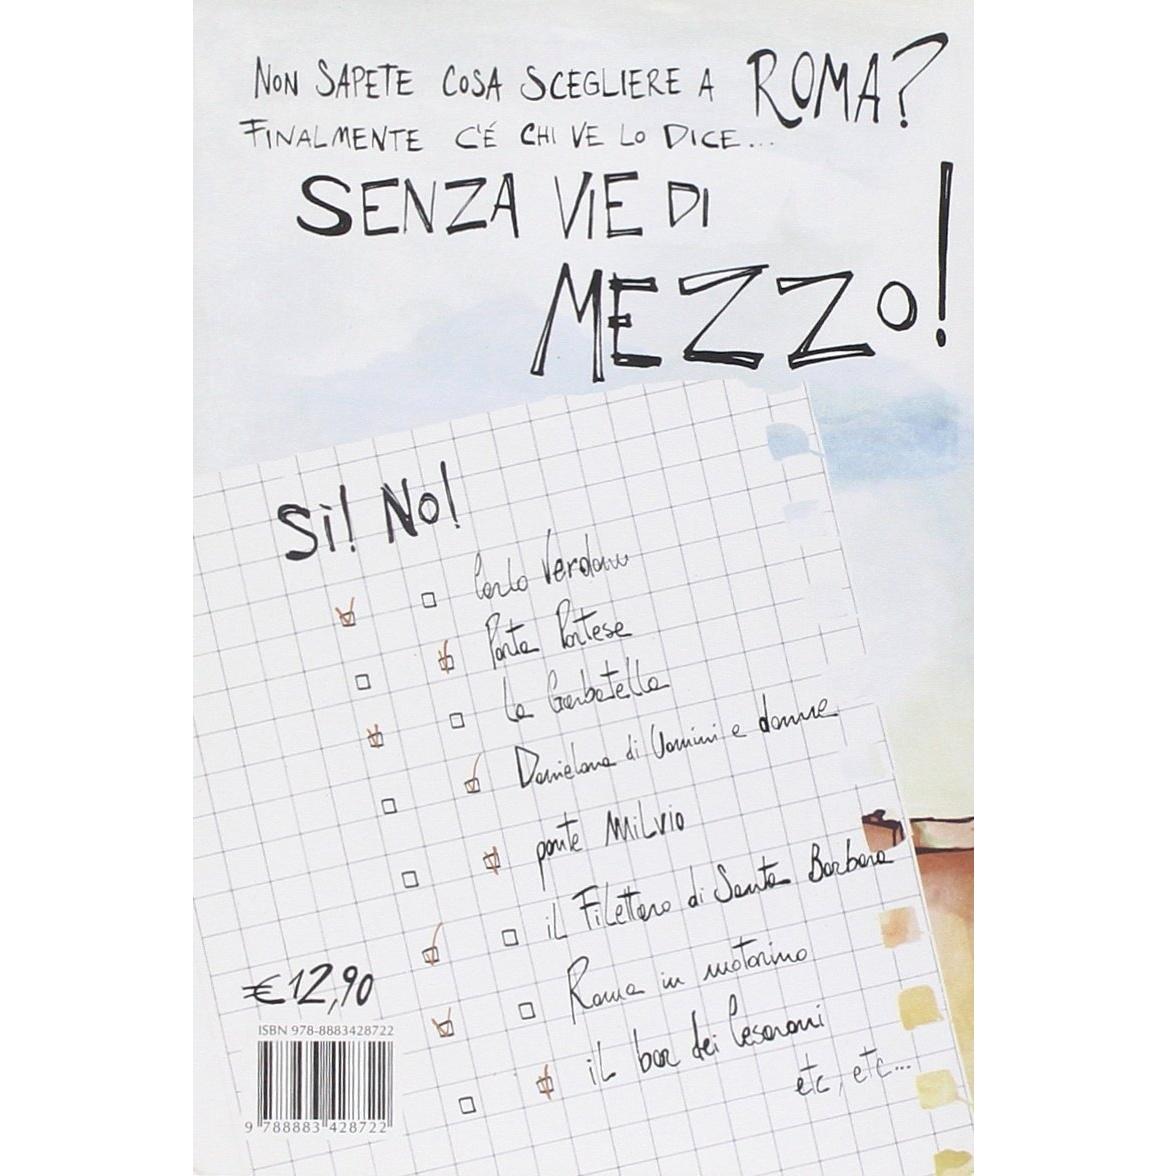 NON SAPETE COSA SCEGLIERE A ROMA?
FINALMENTE C'É CHI VE LO DICE...
SENZA VIE DI
MEZZO!
Sì! No!
Carlo Verdone
Porta Portese
la Garbatella
Damielana di Uomini e donne
ponte MILVIO
il Filettaro di Santa Barbara
Roma in motorino
il bar dei Cesaroni
etc, etc...
€12,90
ISBN 978-8883428722
9 788883 428722